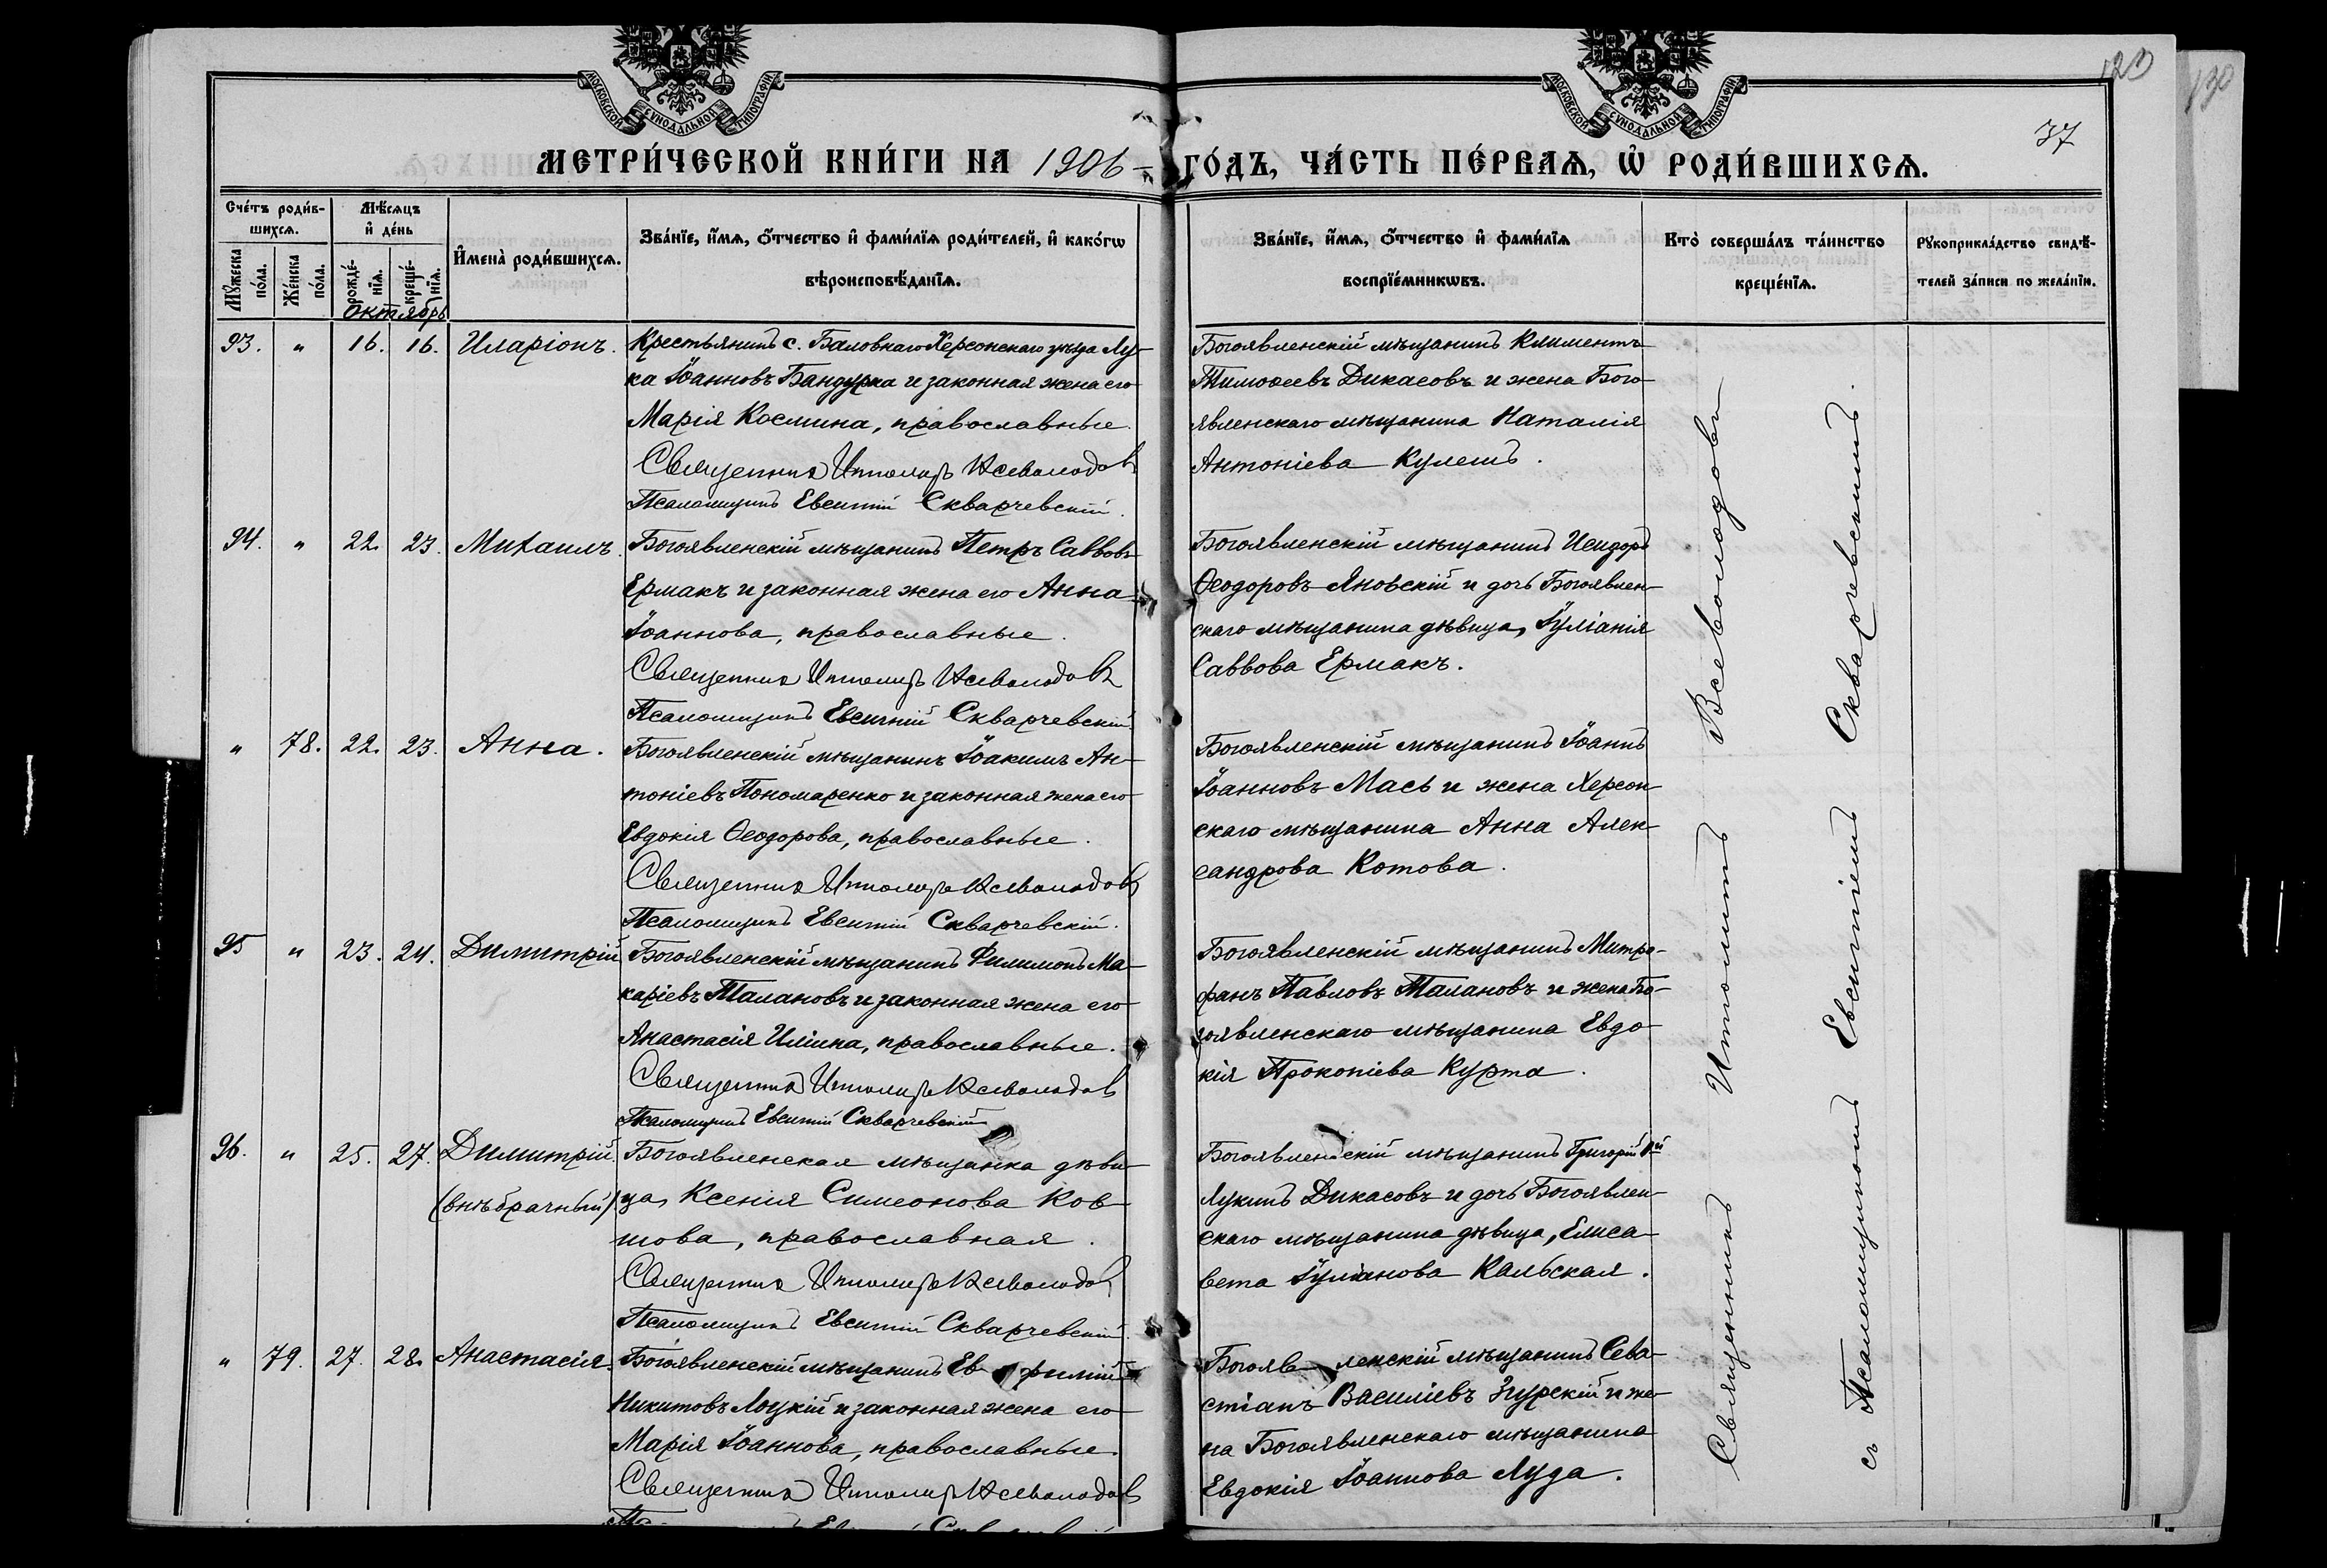 МОСКОВСКОЙ СѴНОДАЛЬНОЙ ТИПОГРАФІИ
МОСКОВСКОЙ СѴНОДАЛЬНОЙ ТИПОГРАФІИ
123
130
37
МЕТРИ́ЧЕСКОЙ КНИ́ГИ НА 1906 ГО́ДЪ, ЧА́СТЬ ПЕ́РВАѦ, Ѿ РОДИ́ВШИХСѦ.
Сче́тъ роди́в-
шихсѧ.
Мꙋ́жеска по́ла.
Же́нска по́ла.
Мѣ́сѧцъ
и҆ де́нь
рожде́-
нїѧ.
креще́-
нїѧ.
Октябрь
И҆мена̀ роди́вшихсѧ.
Зва́нїе, и҆́мѧ, ѻ҆́тчество и҆ фами́лїѧ роди́телей, и҆ како́гѡ
вѣроисповѣ́данїѧ.
Зва́нїе, и҆́мѧ, ѻ҆́тчество и҆ фами́лїѧ
воспрїе́мникѡвъ.
Кто̀ соверша́лъ та́инство
креще́нїѧ.
Рꙋкоприкла́дство свидѣ́-
телей за́писи по жела́нїю.
93. " 16. 16. Иларіонъ.
Крестьянинъ с. Баловнаго Херсонскаго уѣзда Лу-
ка Іоанновъ Бандурка и законная жена его
Марія Космина, православные.
Священникъ Ипполитъ Всеволодовъ
Псаломщикъ Евсигній Скварчевскій.
Богоявленскій мѣщанинъ Климентъ
Тимоѳеевъ Дикасовъ и жена Бого-
явленскаго мѣщанина Наталія
Антоніева Кулешъ.
94. " 22. 23. Михаилъ.
Богоявленскій мѣщанинъ Петръ Саввовъ
Ермакъ и законная жена его Анна
Іоаннова, православные.
Священникъ Ипполитъ Всеволодовъ
Псаломщикъ Евсигній Скварчевскій.
Богоявленскій мѣщанинъ Исидоръ
Ѳеодоровъ Яновскій и дочь Богоявлен-
скаго мѣщанина дѣвица, Іуліанія
Саввова Ермакъ.
" 78. 22. 23. Анна.
Богоявленскій мѣщанинъ Іоакимъ Ан-
тоніевъ Пономаренко и законная жена его
Евдокія Ѳеодорова, православные.
Священникъ Ипполитъ Всеволодовъ
Псаломщикъ Евсигній Скварчевскій.
Богоявленскій мѣщанинъ Іоаннъ
Іоанновъ Мась и жена Херсон-
скаго мѣщанина Анна Алек-
сандрова Котова.
95 " 23. 24. Димитрій
Богоявленскій мѣщанинъ Филимонъ Ма-
каріевъ Талановъ и законная жена его
Анастасія Иліина, православные.
Священникъ Ипполитъ Всеволодовъ
Псаломщикъ Евсигній Скварчевскій
Богоявленскій мѣщанинъ Митро-
фанъ Павловъ Талановъ и жена Бо-
гоявленскаго мѣщанина Евдо-
кія Прокопіева Курта.
96. " 25. 27. Димитрій.
(внѣбрачный)
Богоявленская мѣщанка дѣви-
ца, Ксенія Симеонова Ков-
това, православная.
Священникъ Ипполитъ Всеволодовъ
Псаломщикъ Евсигній Скварчевскій.
Богоявленскій мѣщанинъ Григорій 1й
Лукинъ Дикасовъ и дочь Богоявлен-
скаго мѣщанина дѣвица, Елиса-
вета Іуліанова Кальская.
" 79. 27. 28. Анастасія.
Богоявленскій мѣщанинъ Евфимій
Никитовъ Лоцкій и законная жена его
Марія Іоаннова, православные.
Священникъ Ипполитъ Всеволодовъ
Богоявленскій мѣщанинъ Сева-
стіанъ Василіевъ Згурскій и же-
на Богоявленскаго мѣщанина
Евдокія Іоаннова Луда.
Священникъ Ипполитъ Всеволодовъ
съ Псаломщикомъ Евсигніемъ Скварчевскимъ.